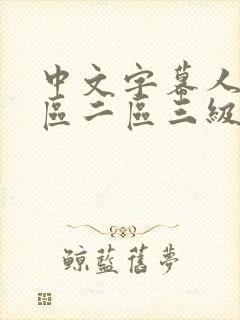 中文字幕人
區二區三級
鯨藍舊夢